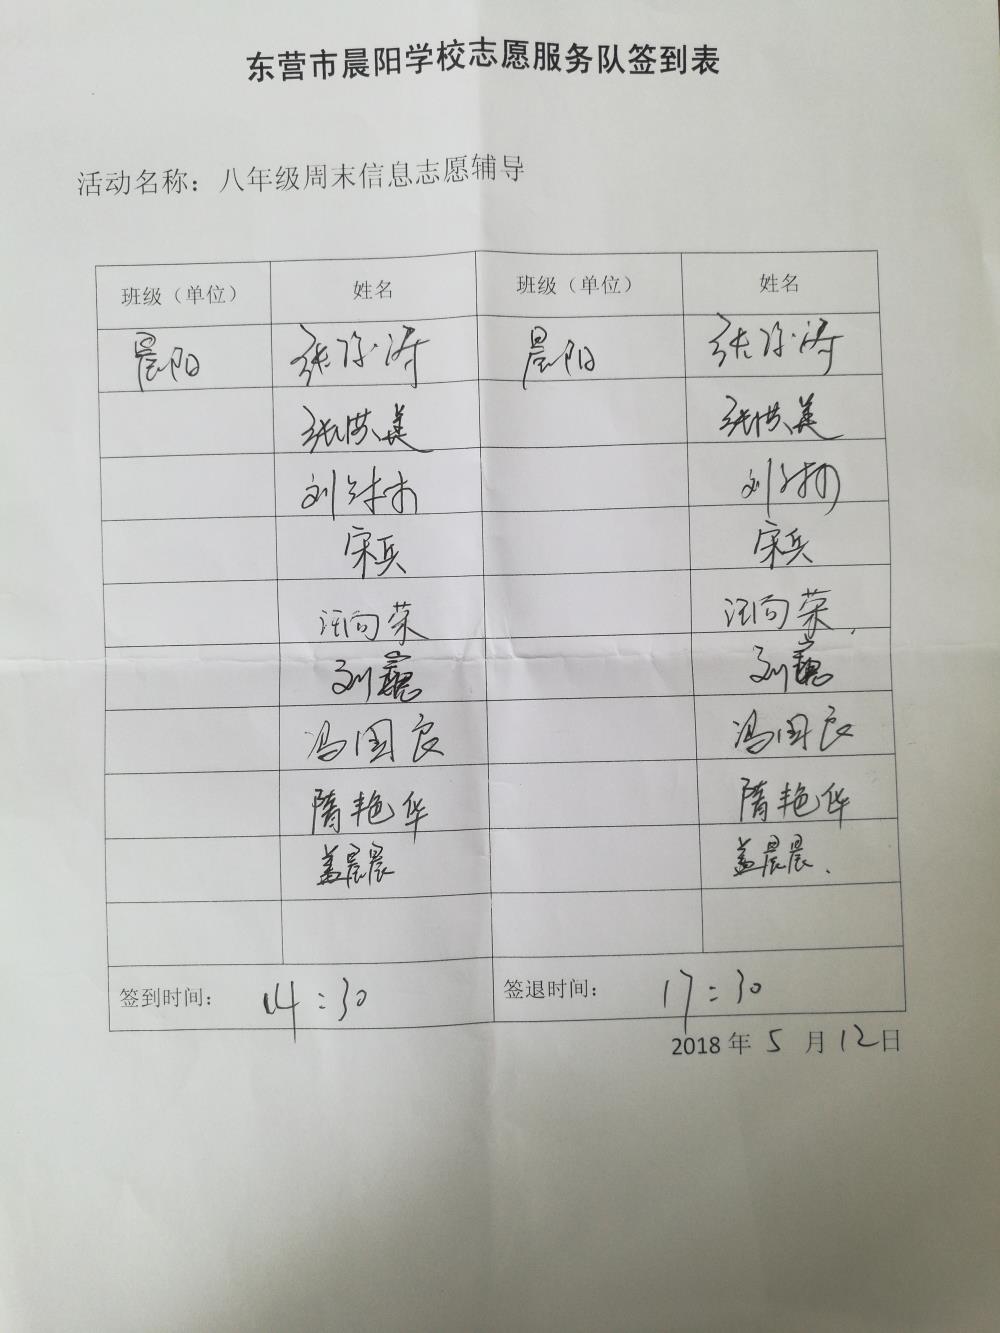 东营市晨阳学校志愿服务队签到表
活动名称：八年级周末信息志愿辅导
班级（单位） 姓名 班级（单位） 姓名
晨阳 张 涛 晨阳 张 涛
张洪美 张洪美
刘 刘
宋兵 宋兵
汪向荣 汪向荣
刘巍 刘巍
冯国良 冯国良
隋艳华 隋艳华
盖晨晨 盖晨晨、
签到时间： 14：30 签退时间： 17：30
2018 年 5 月 12 日